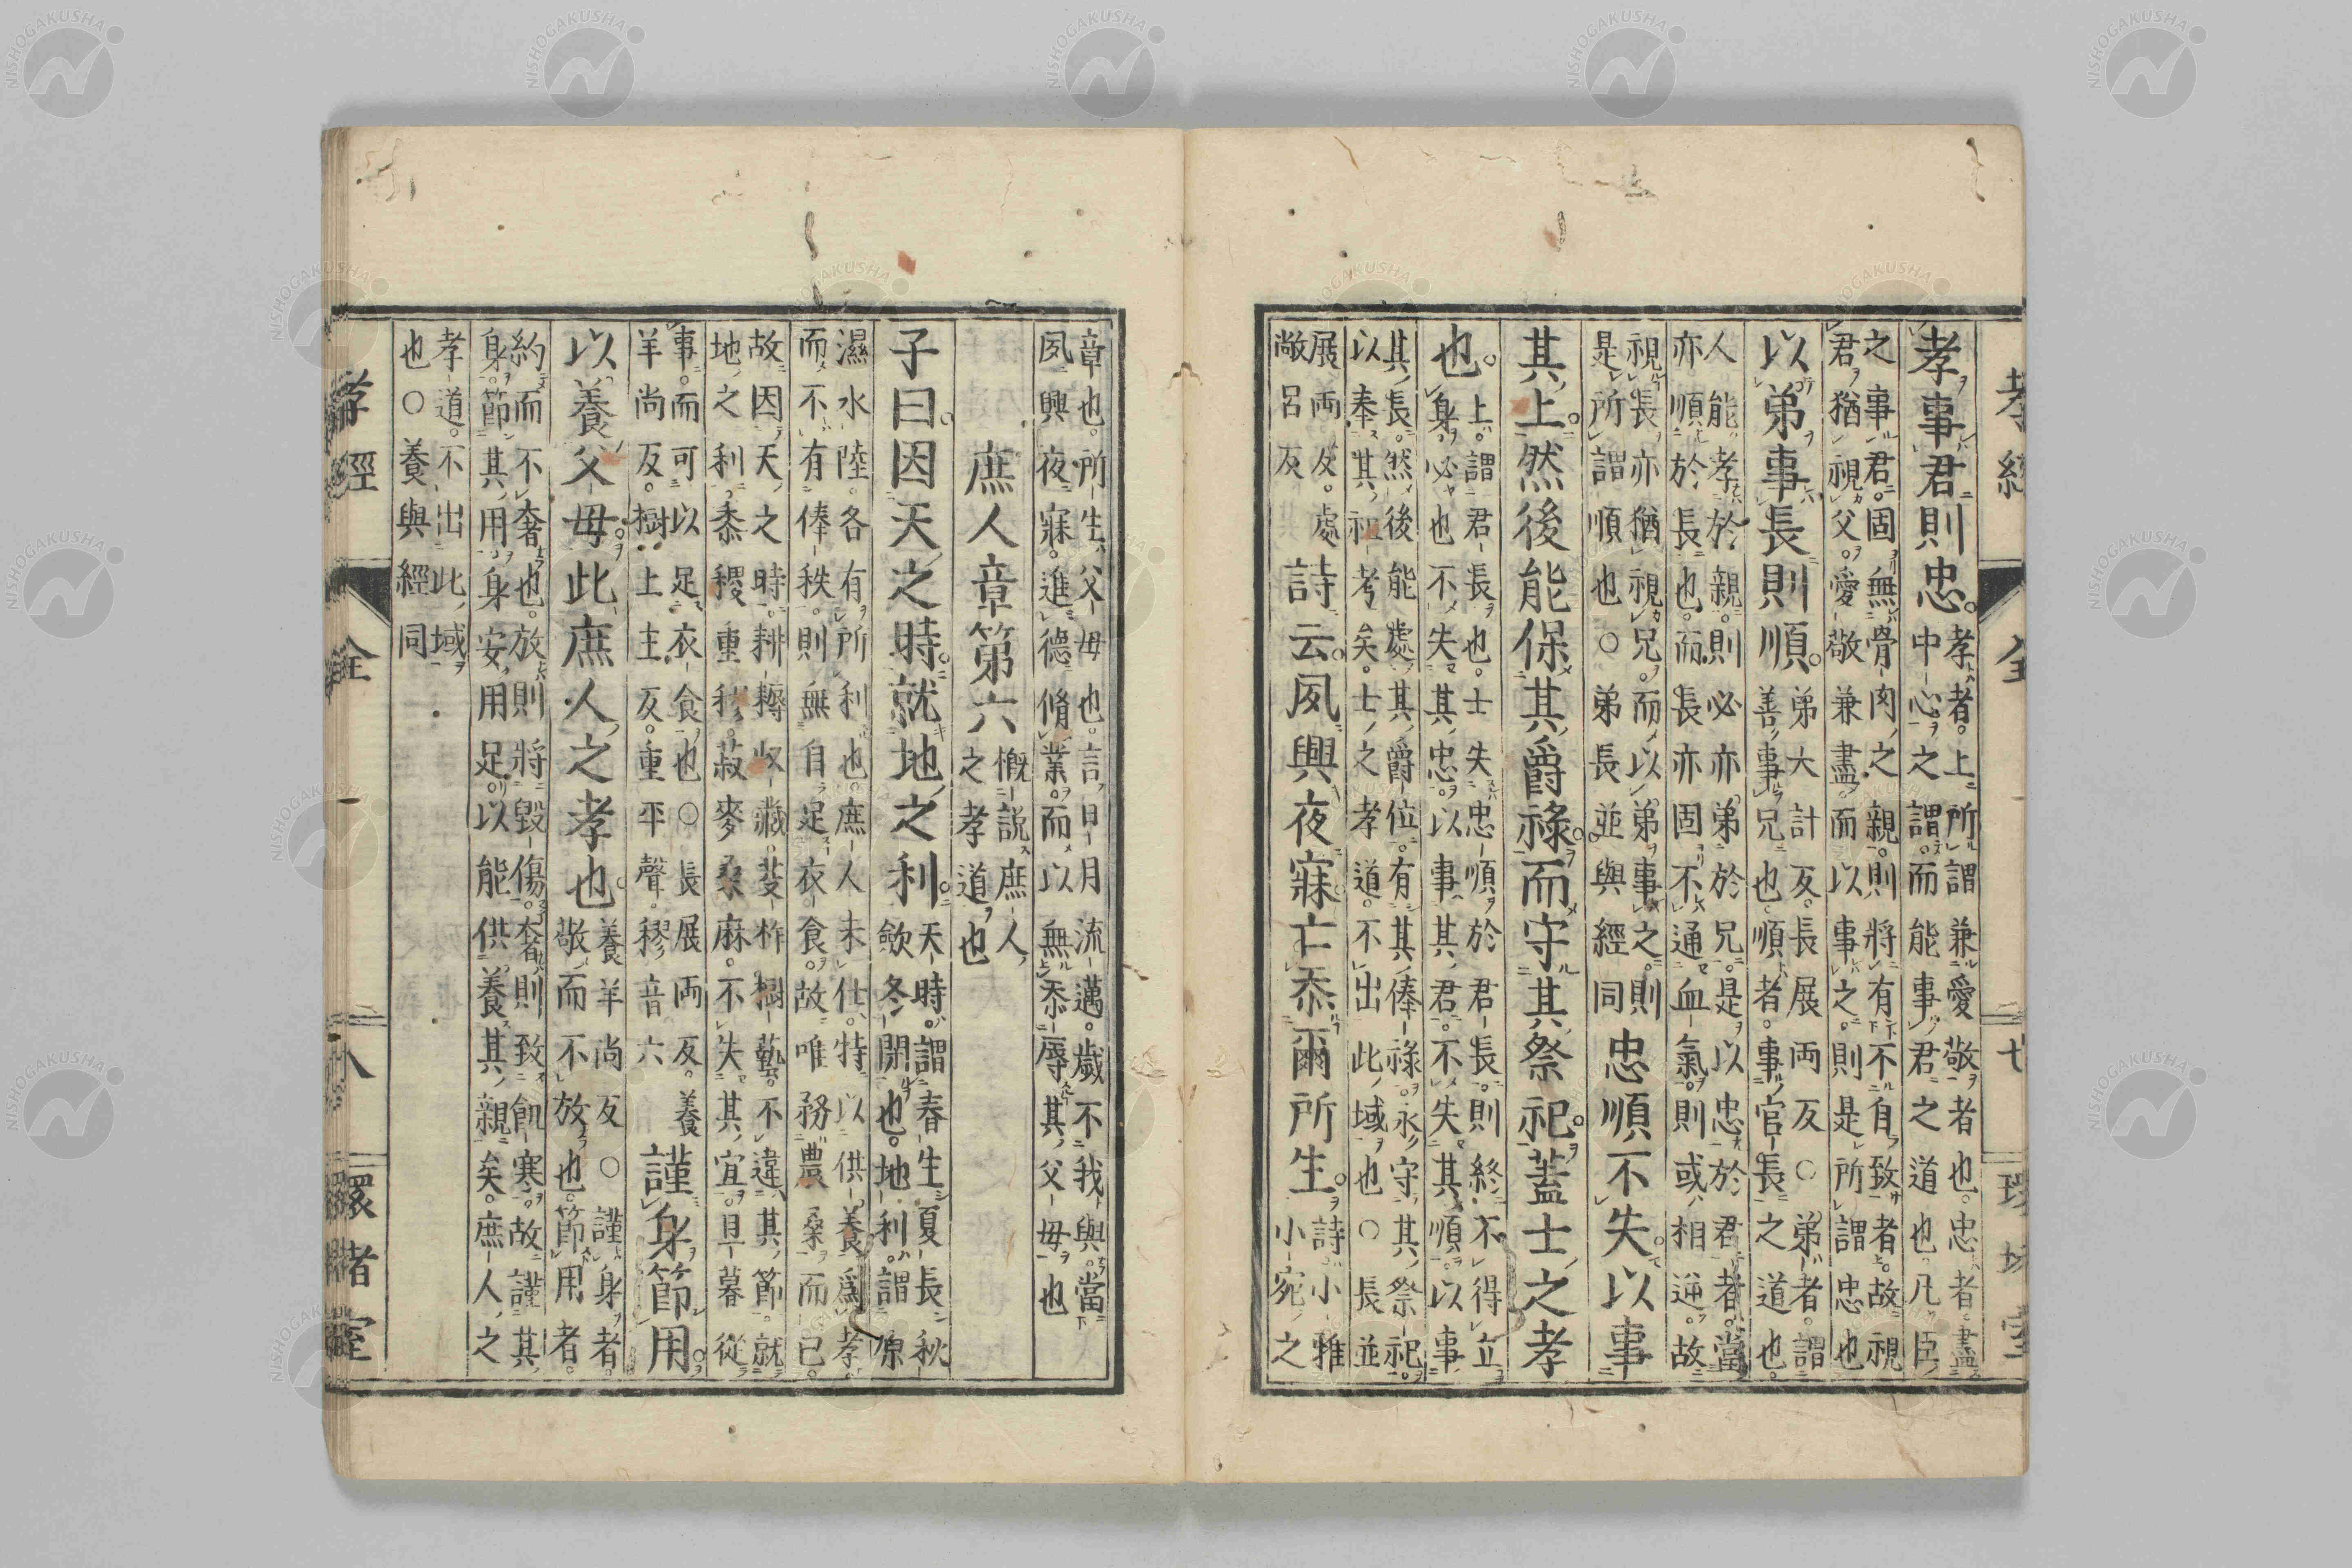 孝經 全 七 環堵室
孝事君則忠。
孝者。上所謂兼愛敬者也。忠者盡
中心之謂而能事君之道也凡臣
之事君。固無骨肉之親。則將有不有致者。故視
君猶視父。愛敬兼盡而以事之。則是所謂忠也
以弟事長則順。
弟大計反長展両反○弟者謂
善事兄也順者。事官長之道也。
人能孝於親。則必亦弟於兄。是以忠於君者。當
亦順於長也。而長亦固不通血氣。則或相逆。故
視長亦猶視兄。而以弟事之。則
是所謂順也○弟長並與經同
忠順不失。以事
其上。然後能保其爵祿。而守其祭祀。蓋士之孝
也。
上謂君長也。士失忠順於君長。則終不得立
身必也不失其忠。以事其君。不失其順以事
其長。然後能處其爵位。有其俸祿。永守其祭祀。
以奉其祖考矣。士之孝道。不出此域也○長並
展両反。處
敞呂反
詩云。夙興夜寐。亡忝爾所生。
詩小雅
小宛之
章也。所生父母也。言日月流邁。歲不我與。當
夙興夜寐。進德脩業。而以無忝辱其父母也
庶人章第六
慨說庶人
之孝道也
子曰。因天之時。就地之利。
天時。謂春生夏長秋
斂冬閉也。地利。謂原
濕水陸。各有所利也。庶人未仕。特以供養爲孝
而不有俸秩。則無自足衣食。故唯務農桑而已。
故因天之時。耕耨收藏。芟柞樹藝。不違其節。就
地之利。黍稷重穋。菽麥桑麻。不失其宜。旦暮從
事。而可以足衣食也○長展両反。養
羊尚反。樹上主反。重平聲。穋音六
謹身節用。
以養父母。此庶人之孝也。
養羊尚反○謹身者。
敬而不放也。節用者。
約而不奢也。放則將毀傷。奢則致飢寒。故謹其
身。節其用。身安用足。以能供養其親矣。庶人之
孝道。不出此域
也○養與經同
孝經 全 八 環堵室